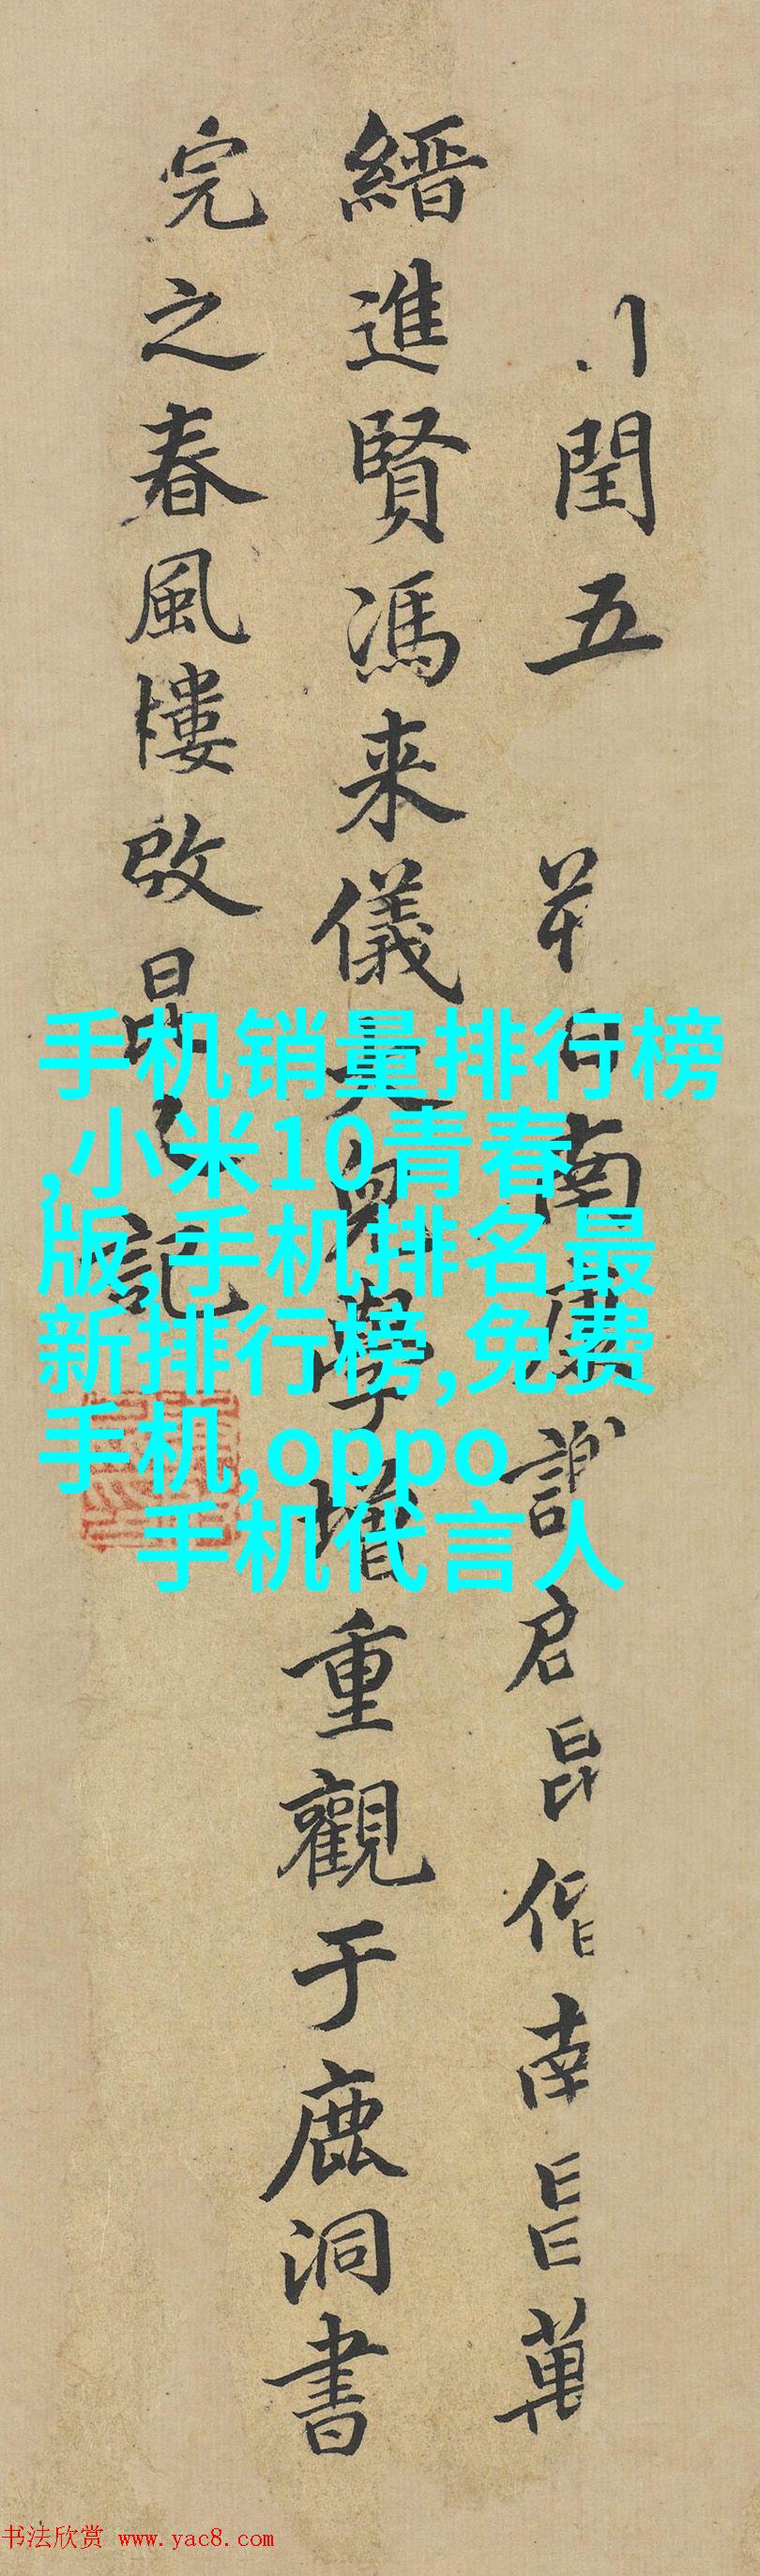 閏五
南康謝君昌偕南昌萬
縉進賢馮来儀
學
重觀于鹿洞書
完之春風樓啟昆
記
手机销量排行榜
,小米10青春
版,手机排名最
新排行榜,免费
手机,oppo
手机代言人
书法欣赏 www.yac8.com